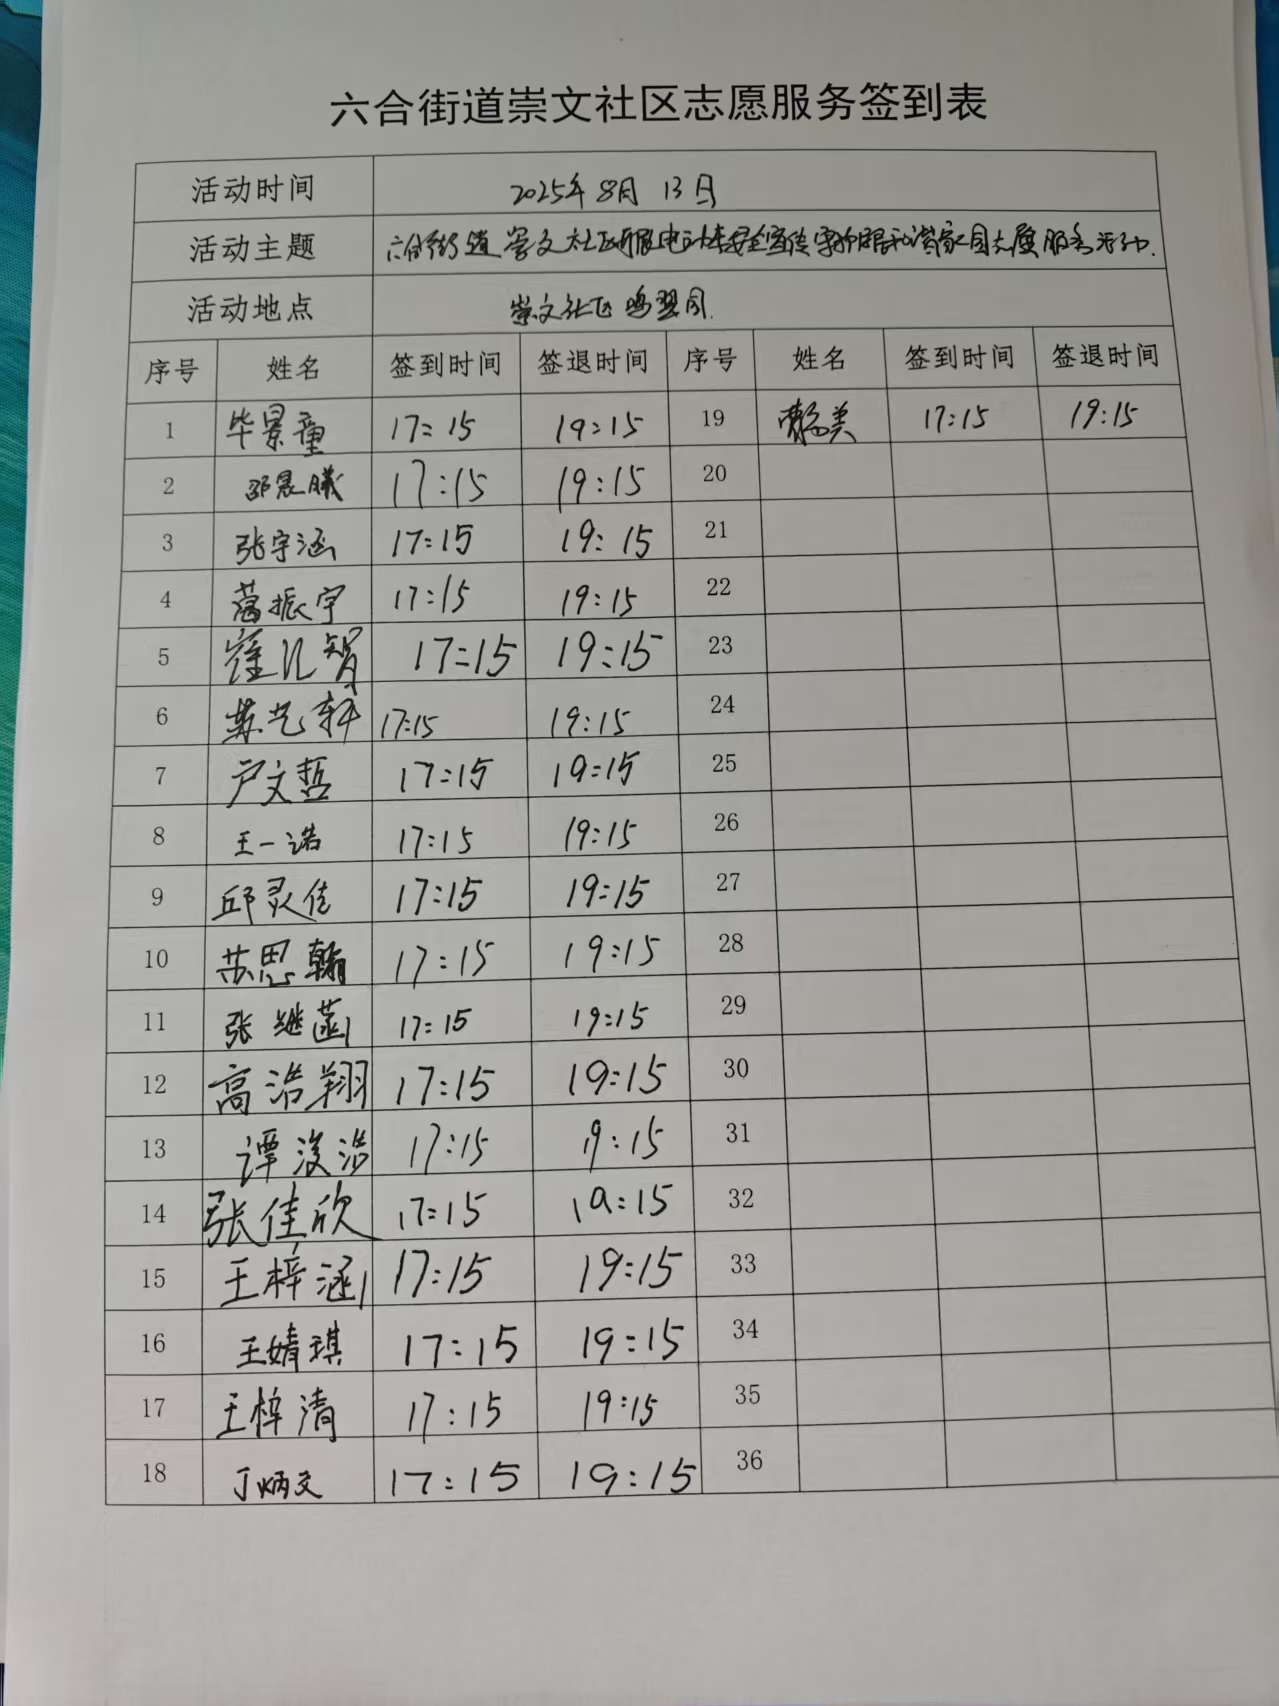 六合街道崇文社区志愿服务签到表
活动时间 2025年8月13日
活动主题 六合街道崇文社区开展电动车安全宣传 和谐家园志愿服务活动.
活动地点 崇文社区鸣翠园.
序号 姓名 签到时间 签退时间 序号 姓名 签到时间 签退时间
1 毕景童 17:15 19:15 19 17:15 19:15
2 邵晨曦 17:15 19:15 20
3 张宇涵 17:15 19:15 21
4 葛振宇 17:15 19:15 22
5 崔汇智 17:15 19:15 23
6 苏艺轩 17:15 19:15 24
7 卢文哲 17:15 19:15 25
8 王一诺 17:15 19:15 26
9 邱灵佳 17:15 19:15 27
10 苏思翰 17:15 19:15 28
11 张继菡 17:15 19:15 29
12 高浩翔 17:15 19:15 30
13 谭浚浩 17:15 19:15 31
14 张佳欣 17:15 19:15 32
15 王梓涵 17:15 19:15 33
16 王婧琪 17:15 19:15 34
17 王梓清 17:15 19:15 35
18 丁炳文 17:15 19:15 36